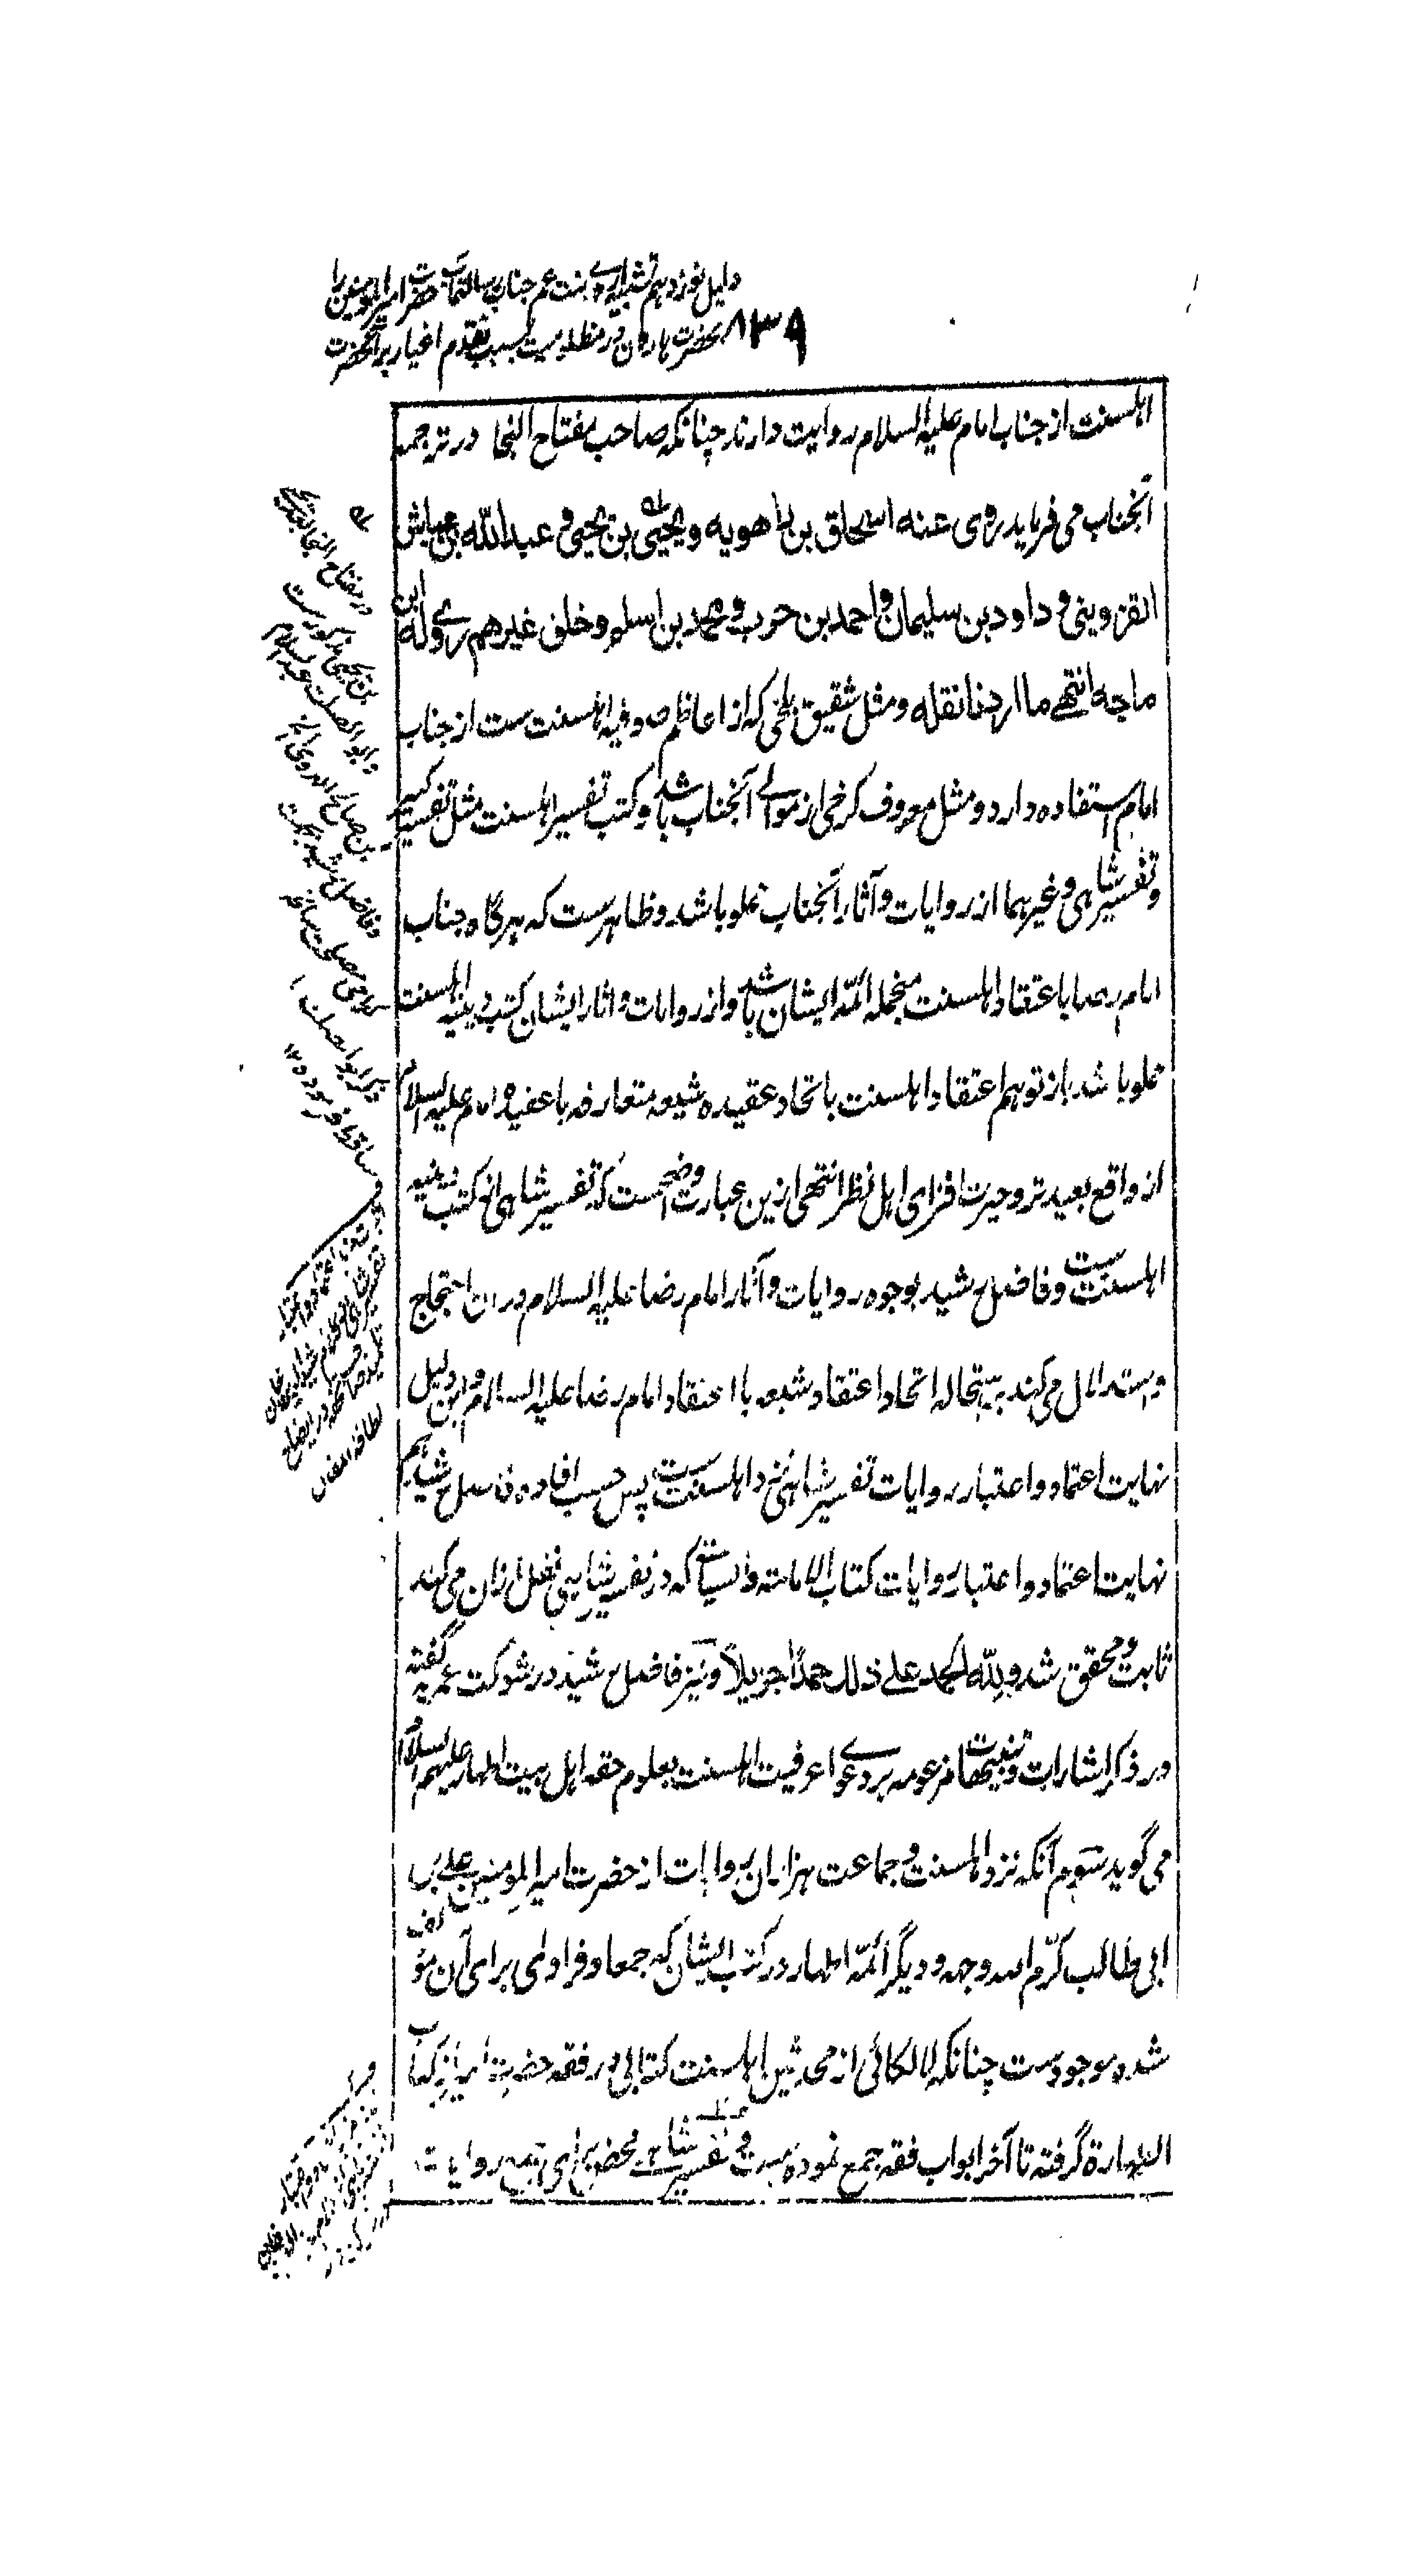 دلیل نوزدهم تشبیه اروے بنت عم جناب رسالتمآب حضرت امیرالمومنین را
بحضرت هارون در مظلومیت بسبب تقدم اغیار بر آنحضرت
۸۳۹
اهلسنت از جناب امام علیه السلام روایت دارند چنانکه صاحب مفتاح النجا در ترجمه
آنجناب می فرماید روی عنه اسحاق بن راهویه و یحیی بن یحیی و عبدالله بن عباش
القزوینی و داود بن سلیمان و احمد بن حرب و محمد بن اسلم و خلق غیرهم روے له ابن
ماجه انتهے ما اردنا نقله و مثل شقیق بلخی که از اعاظم صوفیه اهلسنت ست از جناب
امام استفاده دارد و مثل معروف کرخی از موالے آنجناب باشد و کتب تفسیر اهلسنت مثل تفسیر کبیر
و تفسیر شاهی و غیرهما از روایات و آثار آنجناب مملو باشد و ظاهرست که هرگاه جناب
امام رضا باعتقاد اهلسنت منجمله ائمه ایشان باشد و از روایات و اثار ایشان کتب دینیه اهلسنت
مملو باشد باز توهم اعتقاد اهلسنت باتحاد عقیده شیعه متعارفه با عقیده امام علیه السلام
از واقع بعیدتر و حیرت افزای اهل نظر انتهی ازین عبارت واضحست که تفسیر شاهی از کتب دینیه
اهلسنت ست و فاضل رشید بوجوه روایات و آثار امام رضا علیه السلام در ان احتجاج
و استدلال می کند بر استحاله اتحاد اعتقاد شیعه با اعتقاد امام رضا علیه السلام و این دلیل
نهایت اعتماد و اعتبار روایات تفسیر شاهی نزد اهلسنت ست پس حسب افاده فاضل رشید هم
نهایت اعتماد و اعتبار روایات کتاب الامامته والسیاسته که در تفسیر شاهی نقل از ان می کند
ثابت و محقق شد و لله الحمد علے ذلك حمدًا جزیلًا و نیز فاضل رشید در شوکت عمریه گفته
در ذکر اشارات و تنبیهات مزعومه بر دعوے اعرفیت اهلسنت بعلوم حقه اهل بیت اطهار علیهم السلام
می گوید سوم آنکه نزد اهلسنت و جماعت هزاران روایات از حضرت امیرالمومنین علے بن
ابی طالب کرّم الله وجهه و دیگر ائمه اطهار در کتب ایشان که جمعا و فرادی برای آن مؤلف
شده موجودست چنانکه لالکائی از محدثین اهلسنت کتابی در فقه حضرت امیر از کتاب
الطهارة گرفته تا آخر ابواب فقه جمع نموده ست و تفسیر شاهے محض برای جمع روایات
در مفتاح النجا
بن یحیی مذکورست
و ابو الصلت عبدالسلام
بن صالح الهروی الخ
و فاضل رشید
ذکر ابو الصلت را
ساقط فرموده ۱۲
لطافة المقال